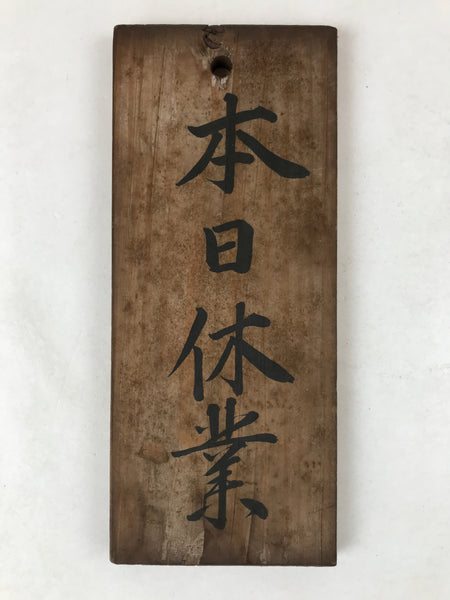 本日休業